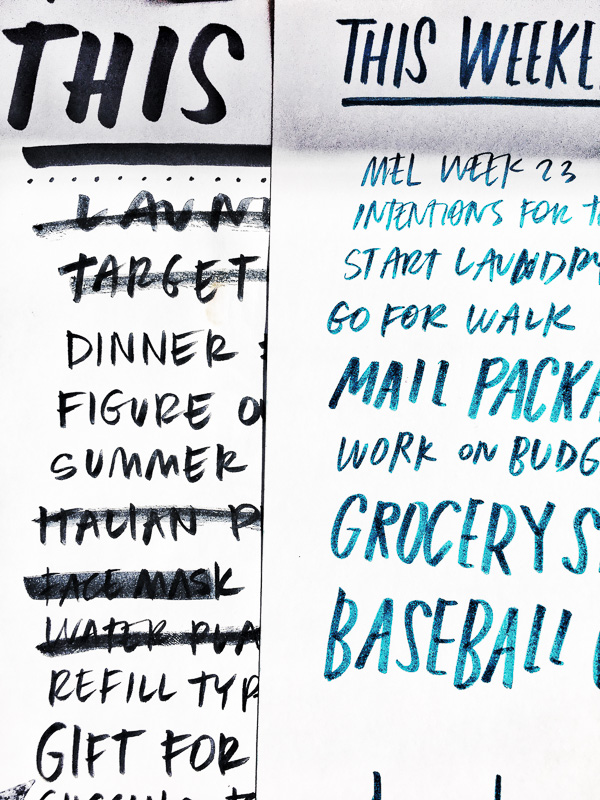 THIS
LAUN
TARGET
DINNER
FIGURE O
SUMMER
ITALIAN P
FACE MASK
WATER PLA
REFILL TYP
GIFT FOR
THIS WEEKE
MEL WEEK 23
INTENTIONS FOR T
START LAUNDRY
GO FOR WALK
MAIL PACKA
WORK ON BUDG
GROCERY S
BASEBALL